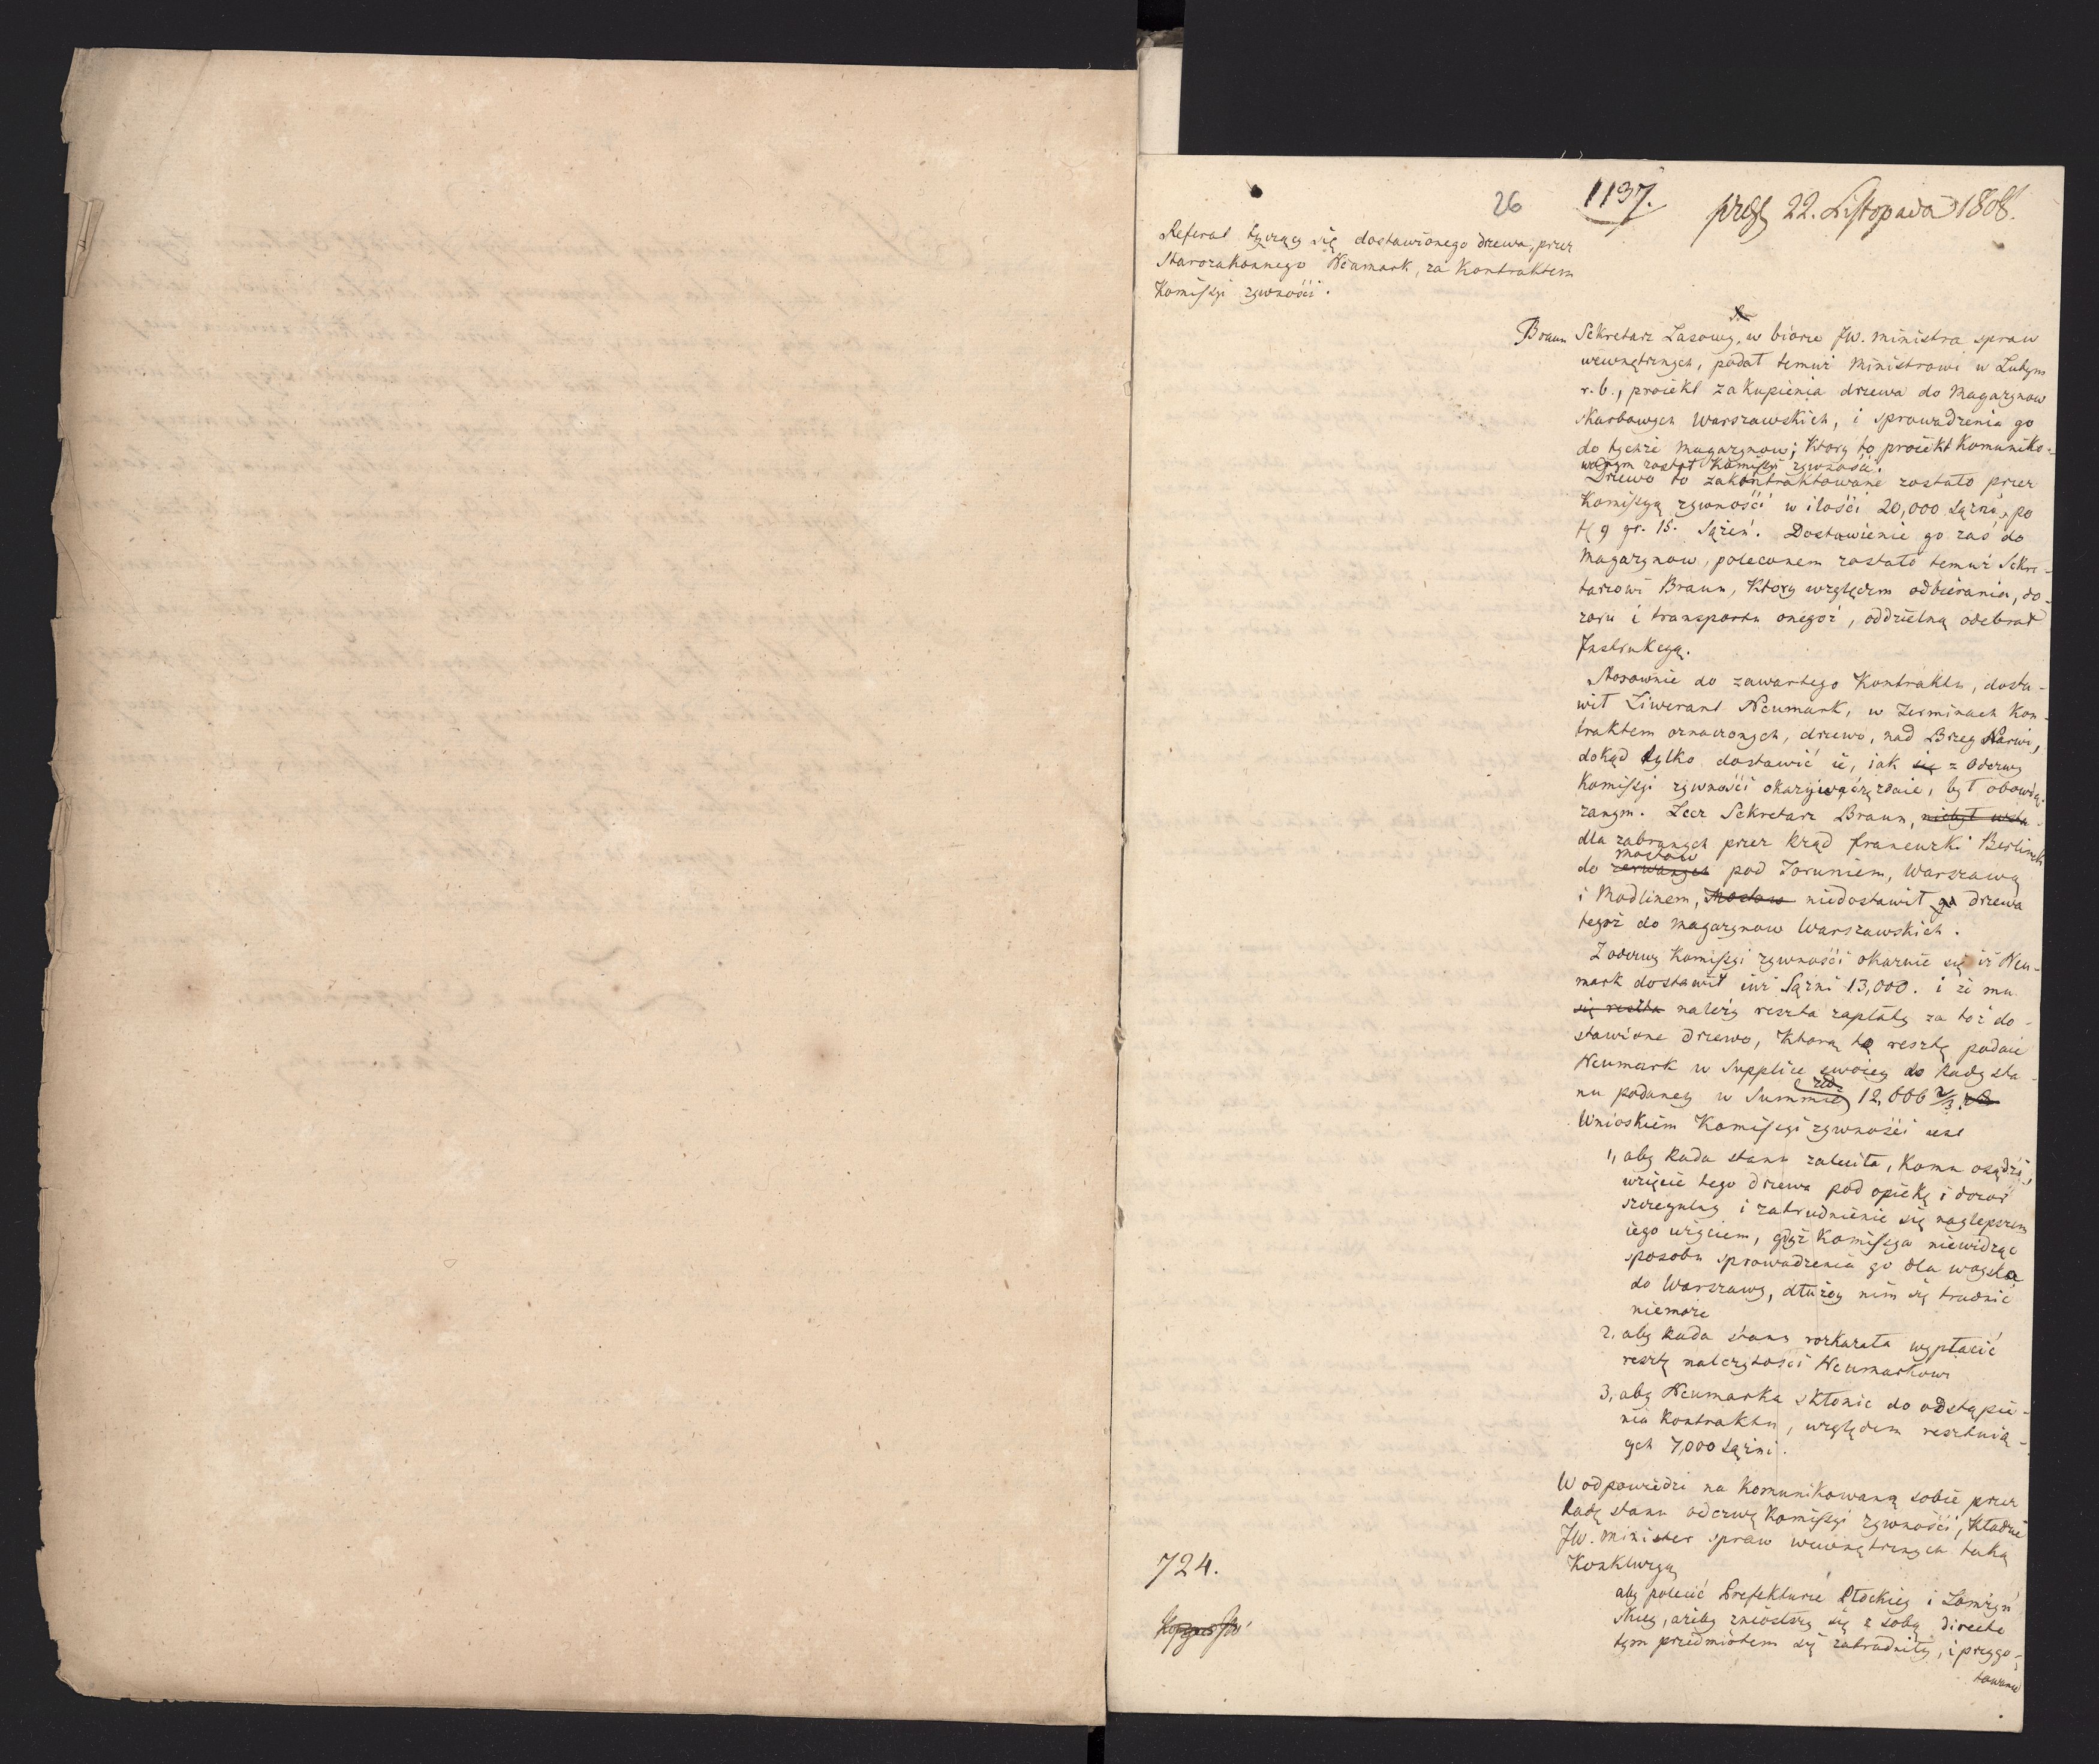 26
1137.
22. Listopada 1808.
Referat tyczący się dostawionego drzewa, przez
Starozakonnego Neumark, za Kontraktem
Komissyi żywności.
Braun Sekretarz Lasowy, w biorze JW. Ministra spraw
wewnętrznych, podał temuż Ministrowi w Lutym
r. b., proiekt zakupienia drzewa do Magazynow
Skarbowych Warszawskich, i sprowadzenia go
do tychże Magazynow; Ktory to proiekt Komuniko-
wanym został Komissyi żywności.
Drzewo to zakontraktowane zostało przez
Komissyą żywności w ilości 20,000 Sążni, po
9 gr. 15. Sążeń. Dostawienie go zaś do
Magazynow, poleconem zostało temuż Sekre-
tarzowi Braun, Ktory względem odbierania, do-
zoru i transportu onegoż, oddzielną odebrał
Instrukcyą.
Stosownie do zawartego Kontraktu, dosta-
wił Liwerant Neumark, w Terminach Kon-
traktem oznaczonych, drzewo, nad Brzeg Narwi,
dokąd tylko dostawić ie, iak się z Odezwy
Komissyi żywności okazywać zdaie, był obowią-
zanym. Lecz Sekretarz Braun,
dla zabranych przez Rząd francuzki Berlinek
do mostow pod Toruniem, Warszawą
i Modlinem, Mostow niedostawił go drzewa
tegoż do Magazynow Warszawskich.
Z odezwy Komissyi żywności okazuie się iż Neu-
mark dostawił iuż Sążni 13,000. i że mu
się reszta należy reszta zapłaty za toż do-
stawione drzewo, Ktorą tę resztę podaie
Neumark w Supplice swoiey do Rady sta-
nu podaney w Summie 12,666 2/3.
Wnioskiem Komissyi żywności iest
1, aby Rada stanu zaleciła, Komu osądzi,
wzięcie tego drzewa pod opiekę i dozor
szczegulny i zatrudnienie się naylepszem
iego użyciem, gdyż Komissya niewidząc
sposobu sprowadzenia go dla woyska
do Warszawy, dłużey nim się trudnić
niemoże
2. aby Rada stanu rozkazała wypłacić
resztę należytości Neumarkowi
3, aby Neumarka skłonić do odstąpie-
nia Kontraktu, względem resztuią-
cych 7,000 Sążni.
W odpowiedzi na Komunikowaną sobie przez
Radę stanu odezwę Komissyi żywności, Kładzie
JW. Minister spraw wewnętrznych taką
Konkluzyą
aby polecić Prefekturze Płockiey i Łomżyń
skiey, ażeby zniosłszy się z sobą directe
tym przedmiotem się zatrudniły, i przygo-
towanie
724.